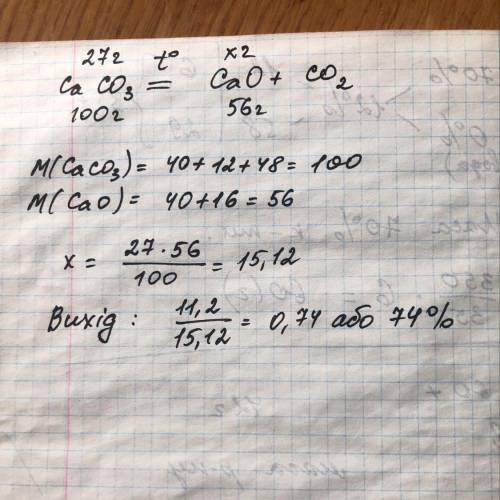 27г t° x г
CaCO₃ = CaO + CO₂
100г 56г
M(CaCO₃) = 40+12+48 = 100
M(CaO) = 40+16 = 56
x = 27·56 / 100 = 15,12
Вихід : 11,2 / 15,12 = 0,74 або 74%